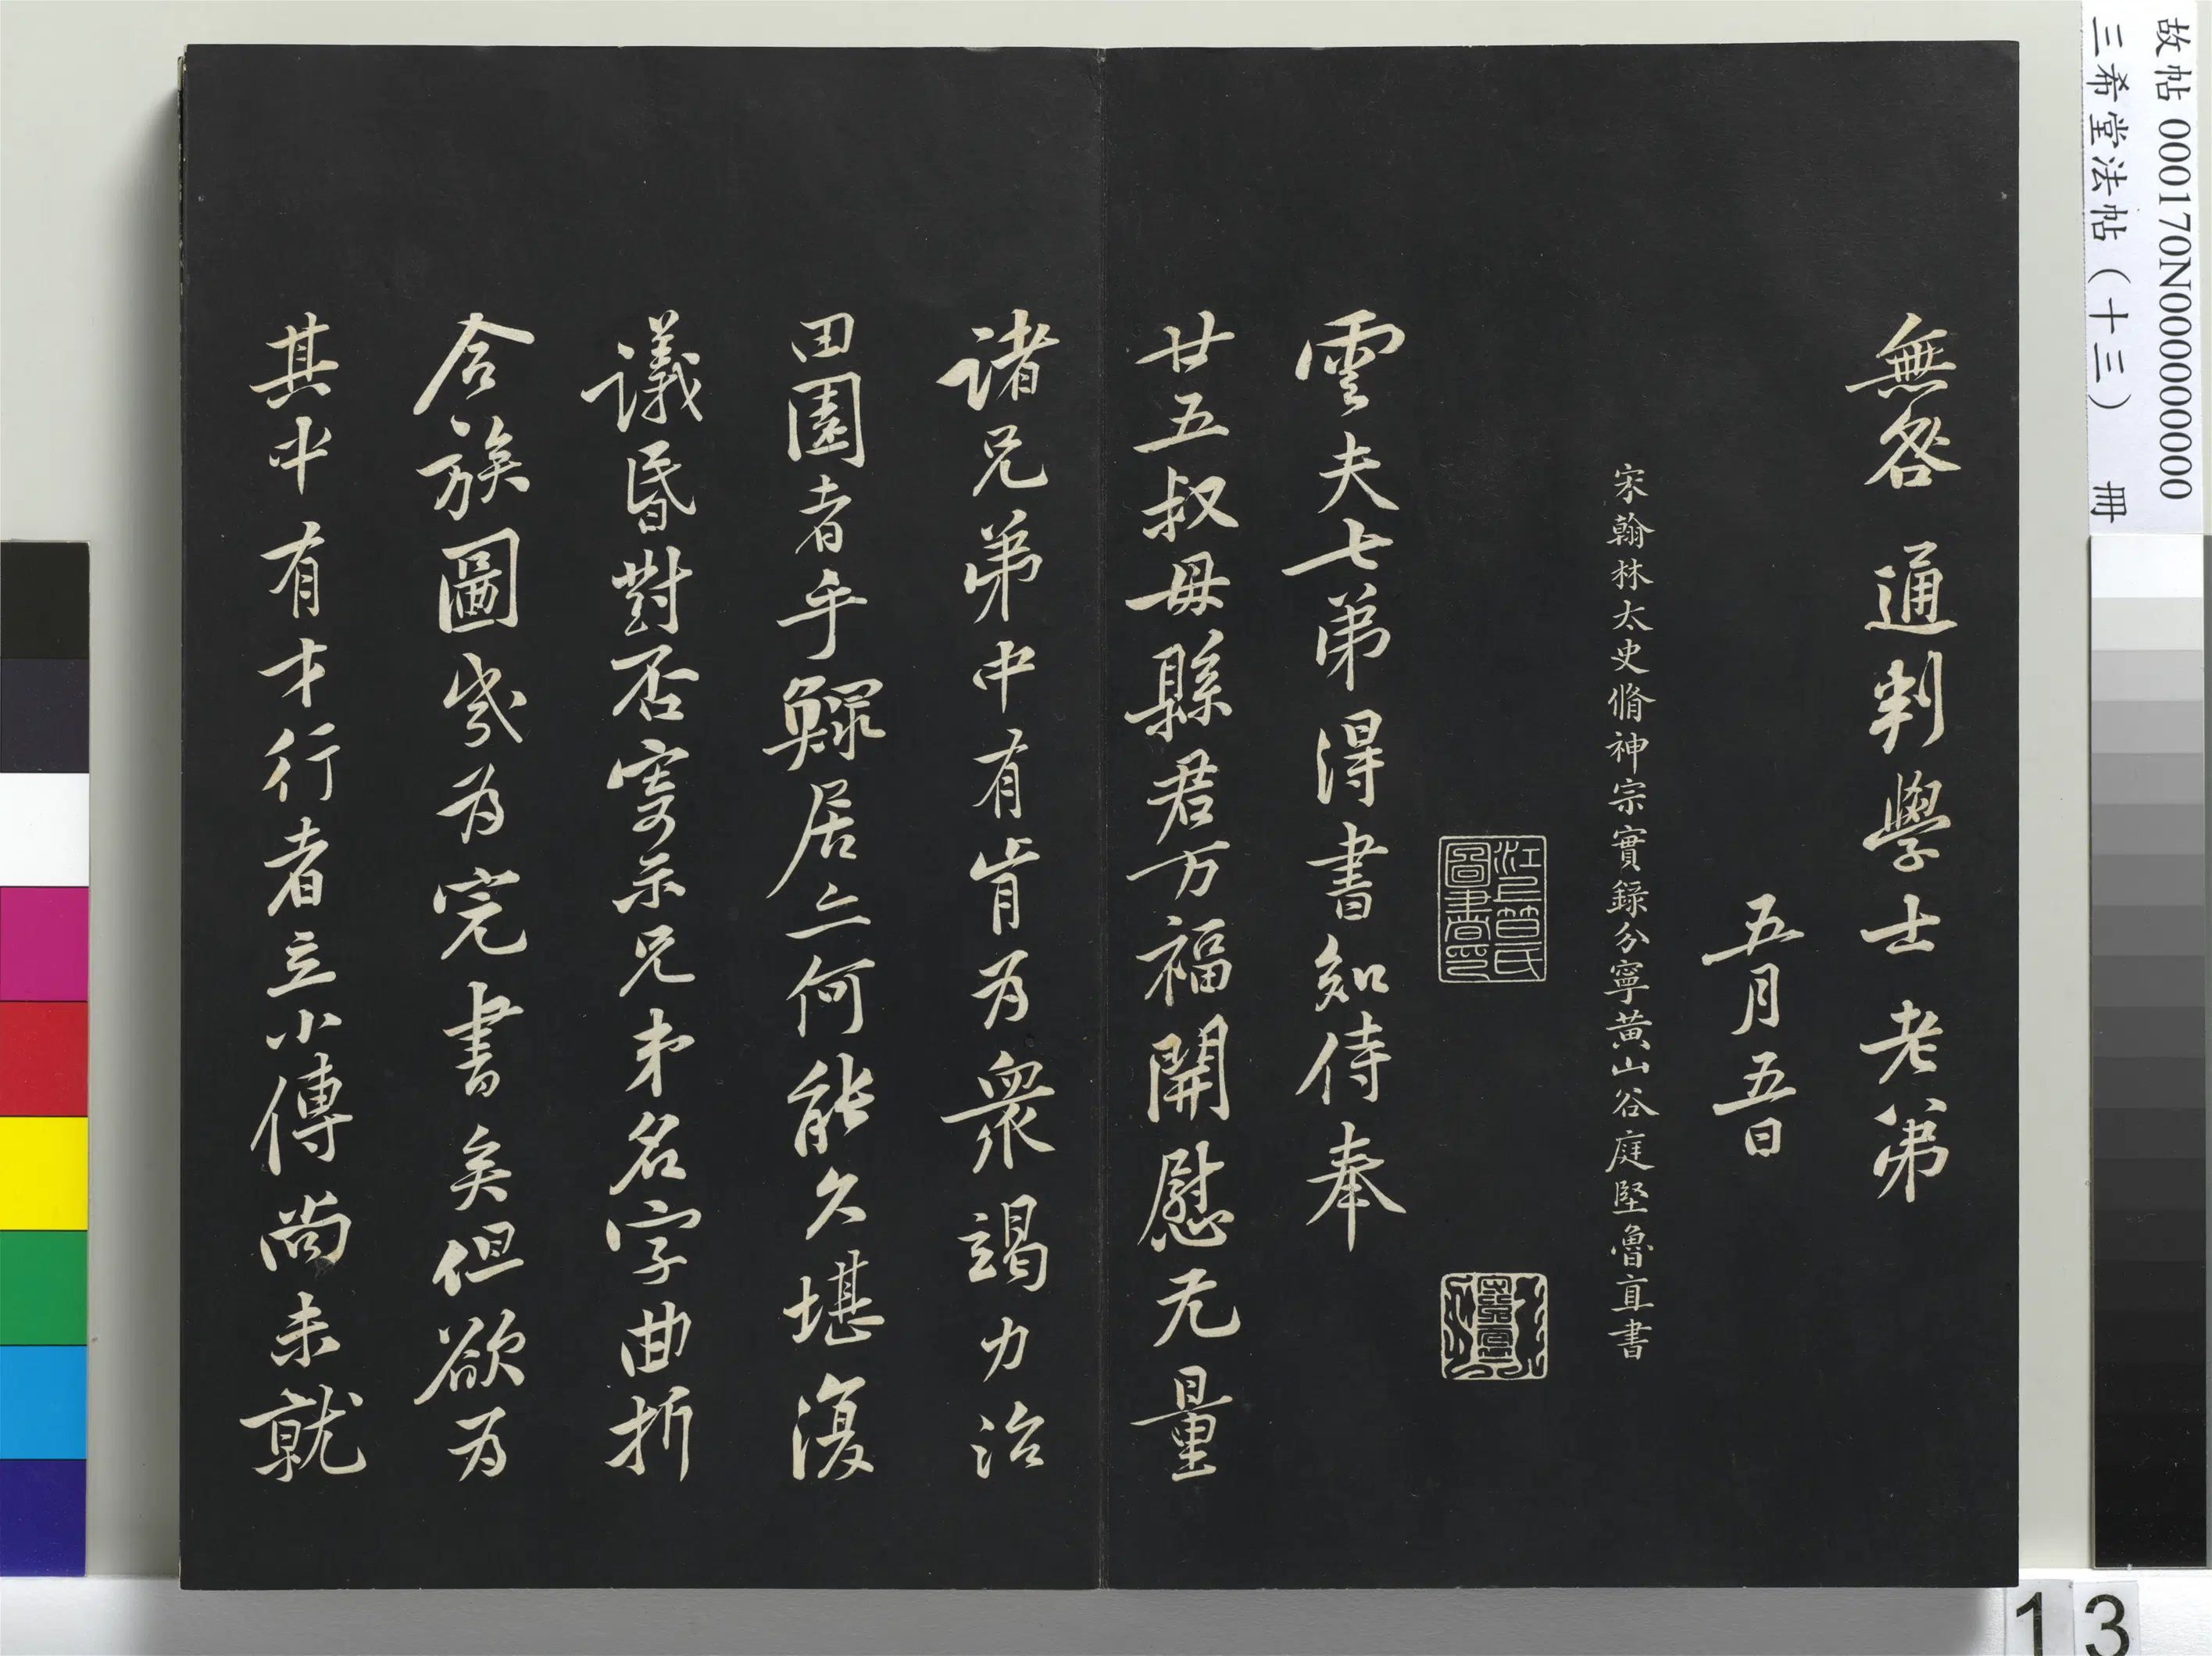 故帖 000170N000000000
三希堂法帖（十三） 冊
無咎 通判學士 老弟
五月五日
宋翰林太史脩神宗實錄分寧黃山谷庭堅魯直書
雲夫七弟得書知侍奉
廿五叔母縣君万福開慰无量
諸兄弟中有肯为衆竭力治
田園者乎鰥居亦何能久堪復
議昏對否寄示兄弟名字曲折
合族圖幾为完書矣但欲为
其中有才行者立小傳尚未就
13